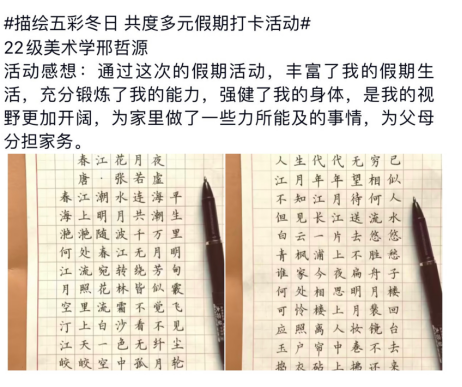 #描绘五彩冬日 共度多元假期打卡活动#
22级美术学邢哲源
活动感想：通过这次的假期活动，丰富了我的假期生
活，充分锻炼了我的能力，强健了我的身体，是我的视
野更加开阔，为家里做了一些力所能及的事情，为父母
分担家务。
春江花月夜
唐·张若虚
春江潮水连海平
海上明月共潮生
滟滟随波千万里
何处春江无月明
江流宛转绕芳甸
月照花林皆似霰
空里流霜不觉飞
汀上白沙看不见
江天一色无纤尘
皎皎空中孤月轮
人生代代无穷已
江月年年望相似
不知江月待何人
但见长江送流水
白云一片去悠悠
青枫浦上不胜愁
谁家今夜扁舟子
何处相思明月楼
可怜楼上月裴回
应照离人妆镜台
玉户帘中卷不去
捣衣砧上拂还来